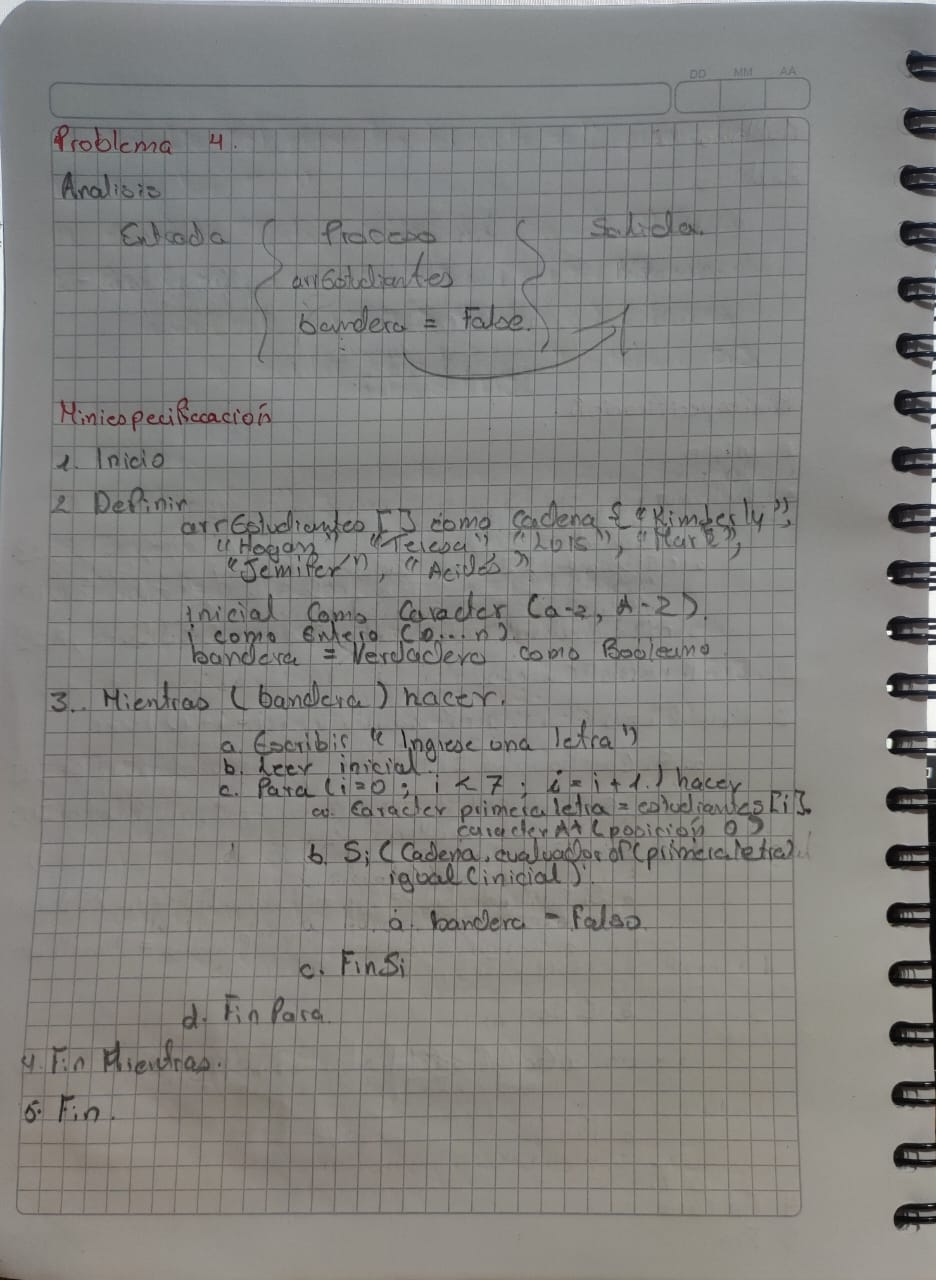 DD MM AA
Problema 4.
Analisis
Entrada Proceso Salida.
arrEstudiantes
bandera = False.
Miniespecificación
1. Inicio
2 Definir
arrEstudiantes [] como Cadena { "Kimberly",
"Hogan" "Teresa" "Lois", "Mark",
"Jemifer", "Acides"
inicial Como Caracter (a-z, A-Z).
i como Entero (0...n)
bandera = Verdadero como Booleano
3.. Mientras (bandera) hacer.
a. Escribir " Ingrese una letra")
b. Leer inicial.
c. Para (i=0 ; i < 7 ; i = i + 1.) hacer
a. Caracter primera letra = estudiantes [i].
caracter At (posición 0)
b. Si (Cadena. evaluador of (primera.letra).
igual (inicial)
a. bandera = Falso.
c. FinSi
d. Fin Para.
4. Fin Mientras.
5. Fin.